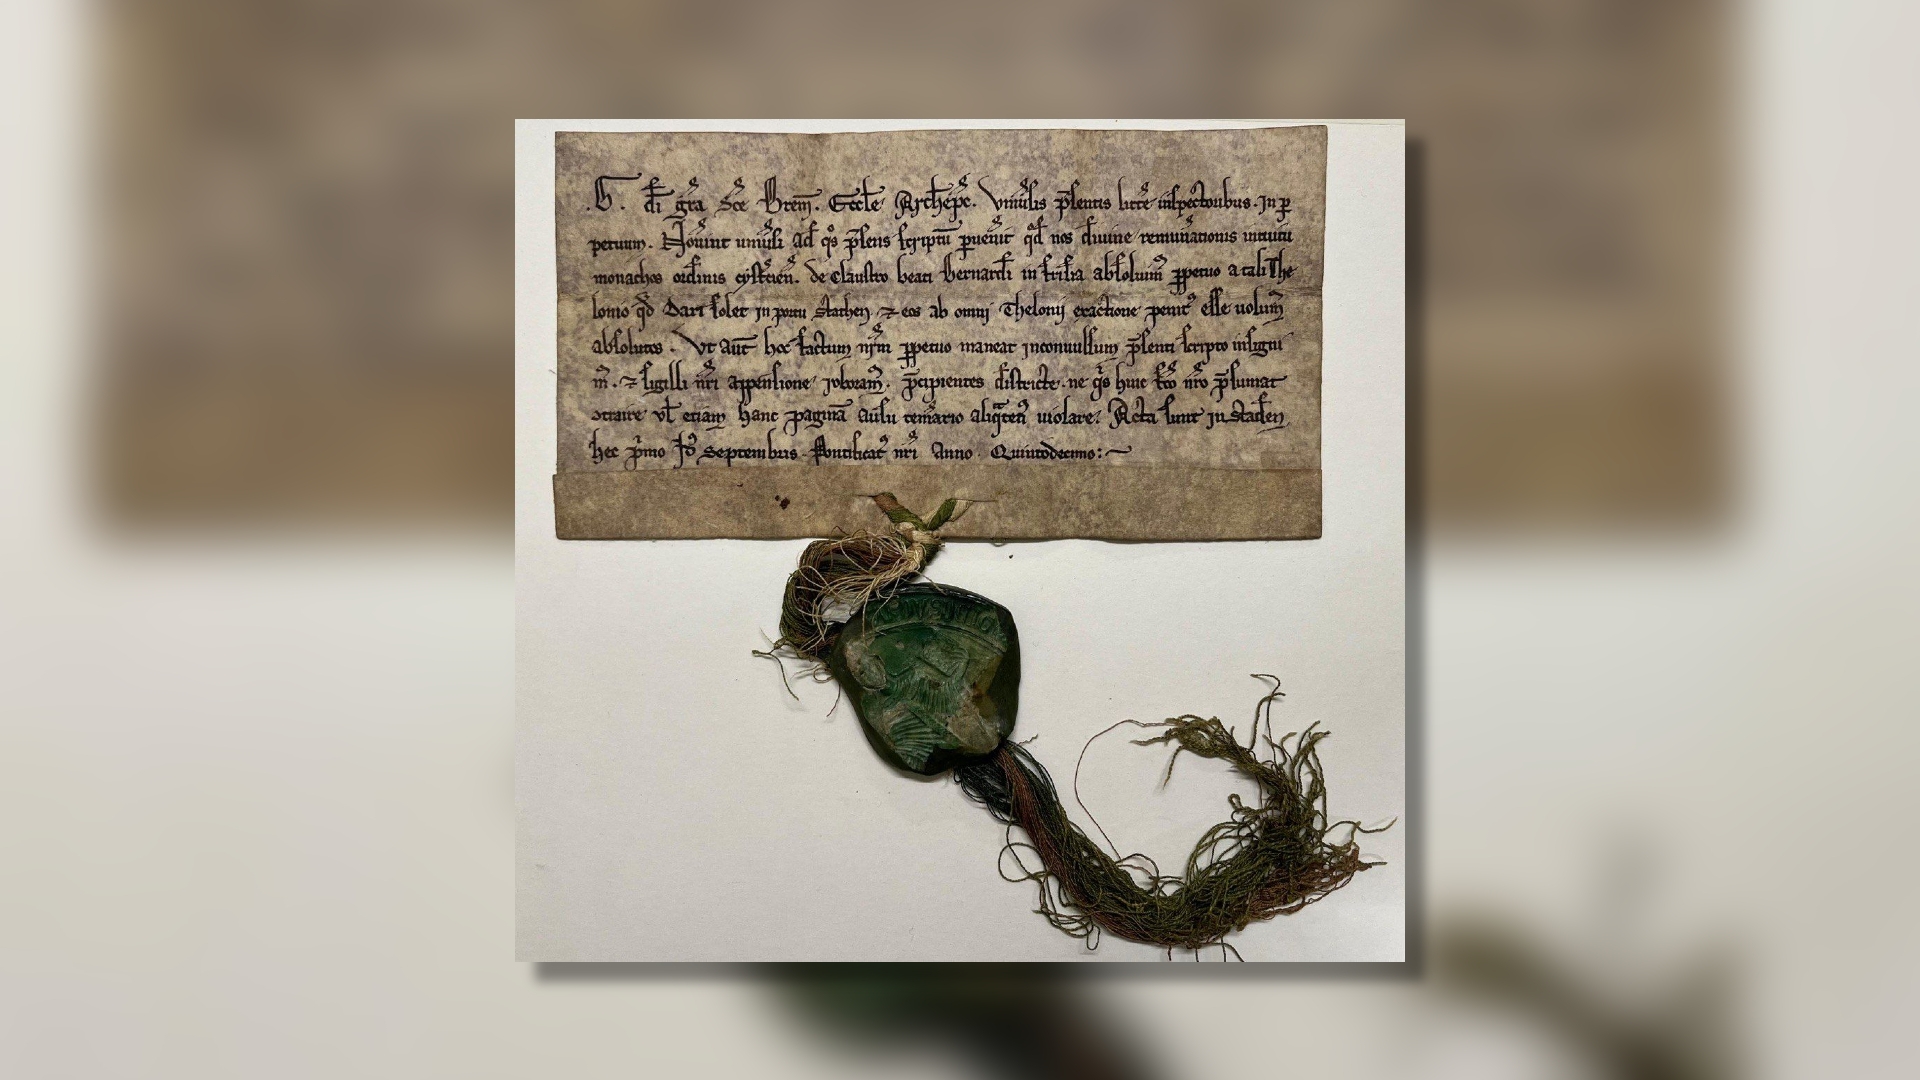 .G. di gra Sce Brem̄. Eccle Archiepc. Vniūsis p̄sentis littē inspectoribus. In p
petuum. Nouint uniūsi ad q̊s p̄sens scriptū puēnit qd nos diuine remun̄ationis intuitu
monachos ordinis cystercien̄. de claustro beati Bernardi in frisia absoluim̄ ppetuo a tali The
lonio qd Dari solet in portu Stathen. ⁊ eos ab omni Thelonij exactione penit᷒ esse uolum̄
absolutos. Vt aut̄ hoc factum nr̄m ppetuo maneat inconuulsum p̄senti scripto insigni
m̄. ⁊ sigilli nr̄i appensione roboram̄. p̄cipientes districte. ne q̄s huic fc̄o nr̄o p̄sumat
ↄtraire vl̄ etiam hanc paginā ausu tem̄ario aliq̄ten᷒ uiolare. Acta sunt in Staden
hec p̄mo Id᷒ Septembris. Pontificat᷒ nr̄i Anno. Quintodecimo:~